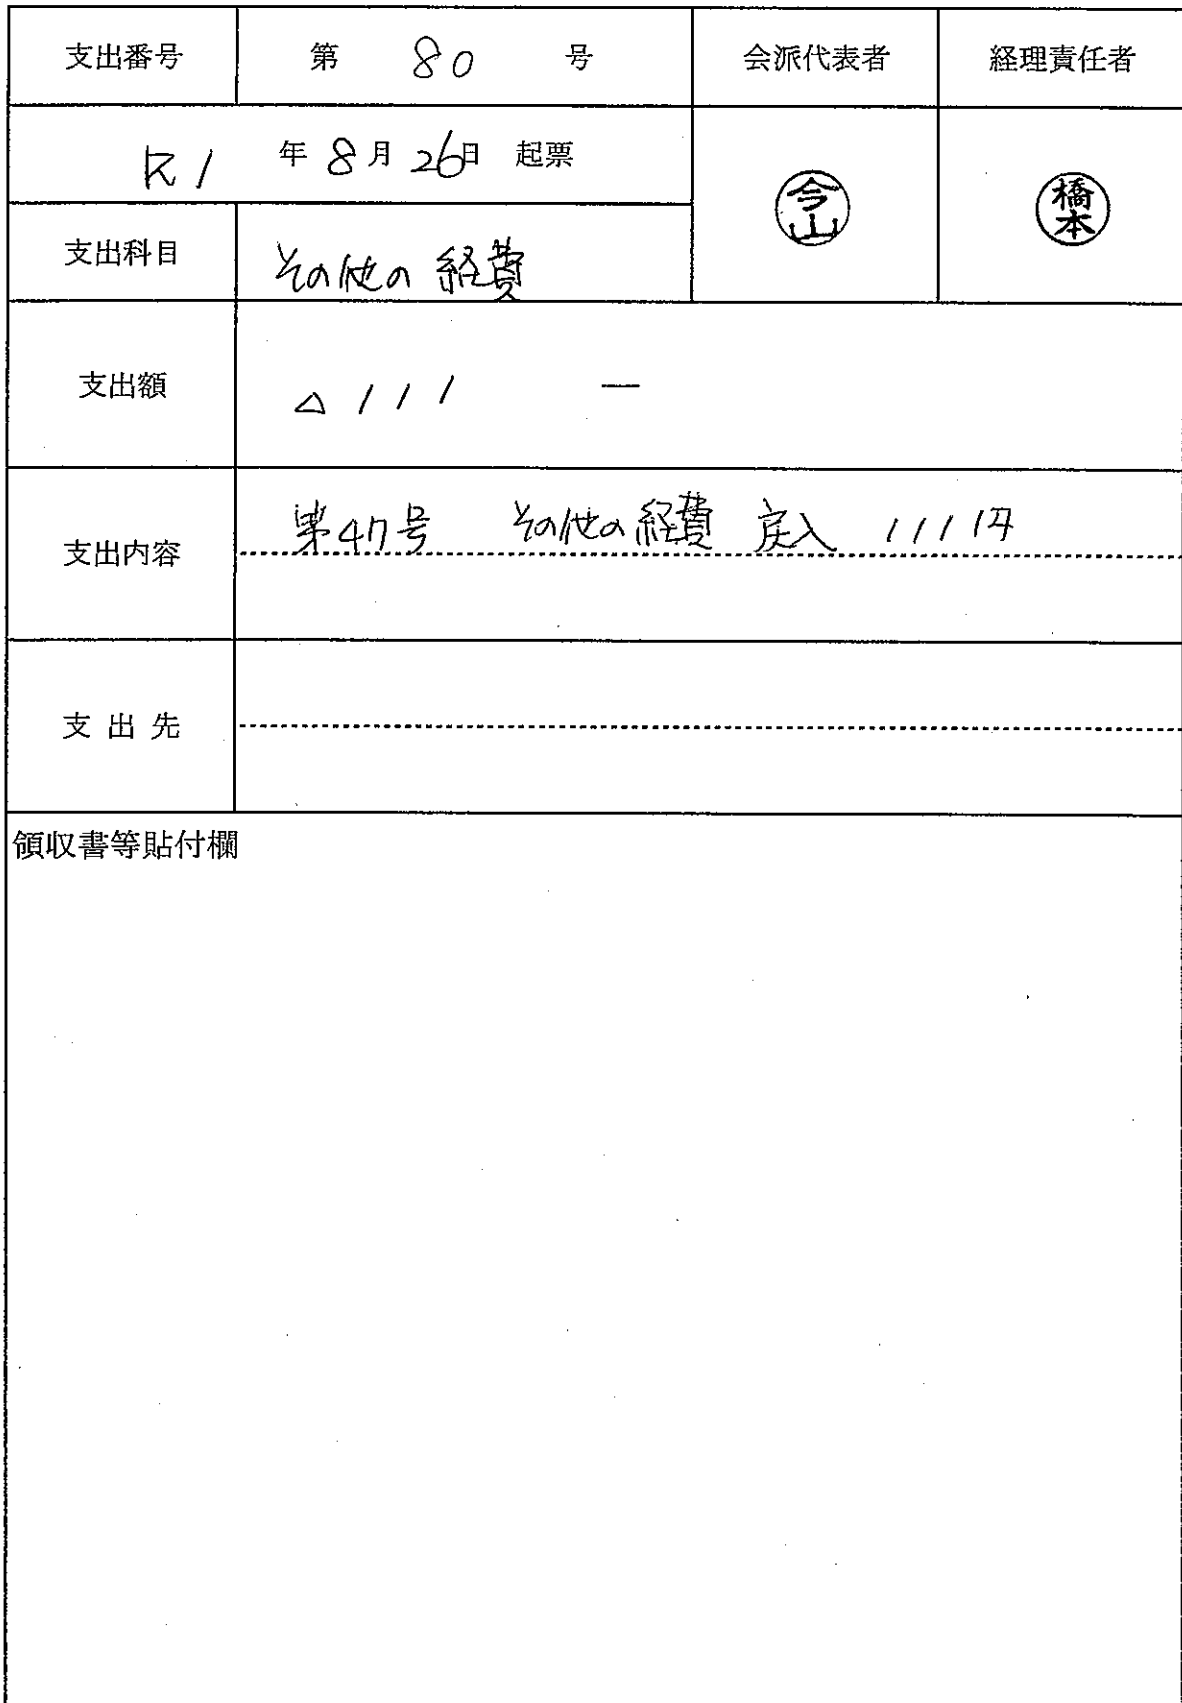 支出番号 第 80 号 会派代表者 経理責任者
R1 年 8 月 26日 起票
今山
橋本
支出科目 その他の経費
支出額 △111 ―
支出内容 第47号 その他の経費 戻入 111円
支出先
領収書等貼付欄